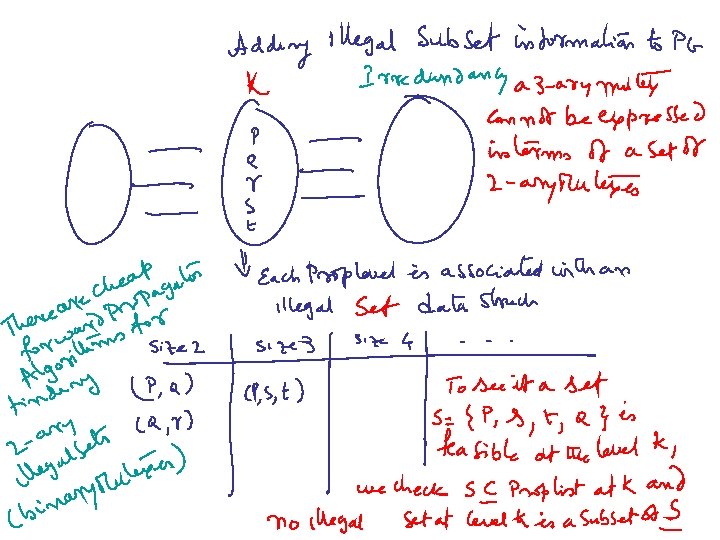 Adding illegal Subset information to PG
K
Irredundancy
a 3-ary mutex
cannot be expressed
in terms of a set of
2-ary mutexes
P
Q
r
S
t
Each Proplevel is associated with an
illegal Set data struch
There are cheap
forward propagation
Algorithms for
finding
2-ary
illegal sets
(binary mutexes)
size 2 size 3 size 4 ...
(P, Q) (P, S, t)
(Q, r)
To see if a set
S = {P, S, t, Q} is
feasible at the level k,
we check S ⊂ Proplist at k and
no illegal set at level k is a subset of S